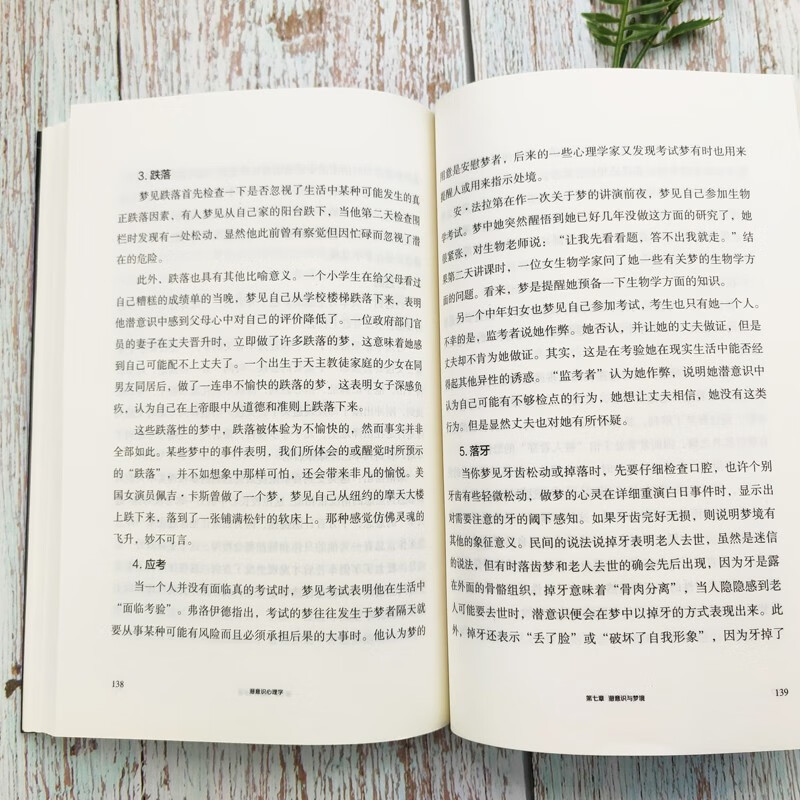 3. 跌落
梦见跌落首先检查一下是否忽视了生活中某种可能发生的真
正跌落因素，有人梦见从自己家的阳台跌下，当他第二天检查围
栏时发现有一处松动，显然他此前曾有察觉但因忙碌而忽视了潜
在的危险。
此外，跌落也具有其他比喻意义。一个小学生在给父母看过
自己糟糕的成绩单的当晚，梦见自己从学校楼梯跌落下来，表明
他潜意识中感到父母心中对自己的评价降低了。一位政府部门官
员的妻子在丈夫晋升时，立即做了许多跌落的梦，这意味着她感
到自己可能配不上丈夫了。一个出生于天主教徒家庭的少女在同
男友同居后，做了一连串不愉快的跌落的梦，这表明女子深感负
疚，认为自己在上帝眼中从道德和准则上跌落下来。
这些跌落性的梦中，跌落被体验为不愉快的，然而事实并非
全部如此。某些梦中的事件表明，我们所体会的或醒觉时所预示
的“跌落”，并不如想象中那样可怕，还会带来非凡的愉悦。美
国女演员佩吉·卡斯曾做了一个梦，梦见自己从纽约的摩天大楼
上跌下来，落到了一张铺满松针的软床上。那种感觉仿佛灵魂的
飞升，妙不可言。
4. 应考
当一个人并没有面临真的考试时，梦见考试表明他在生活中
“面临考验”。弗洛伊德指出，考试的梦往往发生于梦者隔天就
要从事某种可能有风险而且必须承担后果的大事时。他认为梦的
138
潜意识心理学
用意是安慰梦者，后来的一些心理学家又发现考试梦有时也用来
提醒人或用来指示处境。
安·法拉第在作一次关于梦的讲演前夜，梦见自己参加生物
学考试。梦中她突然醒悟到她已好几年没做这方面的研究了，她
很紧张，对生物老师说：“让我先看看题，答不出我就走。”结
果第二天讲课时，一位女生物学家问了她一些有关梦的生物学方
面的问题。看来，梦是提醒她预备一下生物学方面的知识。
另一个中年妇女也梦见自己参加考试，考生也只有她一个人。
不幸的是，监考者说她作弊。她否认，并让她的丈夫做证，但是
丈夫却不肯为她做证。其实，这是在考验她在现实生活中能否经
得起其他异性的诱惑。“监考者”认为她作弊，说明她潜意识中
认为自己可能有不够检点的行为，她想让丈夫相信，她没有这类
行为。但是显然丈夫也对她有所怀疑。
5. 落牙
当你梦见牙齿松动或掉落时，先要仔细检查口腔，也许个别
牙齿有些轻微松动，做梦的心灵在详细重演白日事件时，显示出
对需要注意的牙的阈下感知。如果牙齿完好无损，则说明梦境有
其他的象征意义。民间的说法说掉牙表明老人去世，虽然是迷信
的说法，但有时落齿梦和老人去世的确会先后出现，因为牙是露
在外面的骨骼组织，掉牙意味着“骨肉分离”，当人隐隐感到老
人可能要去世时，潜意识便会在梦中以掉牙的方式表现出来。此
外，掉牙还表示“丢了脸”或“破坏了自我形象”，因为牙掉了
第七章 潜意识与梦境
139